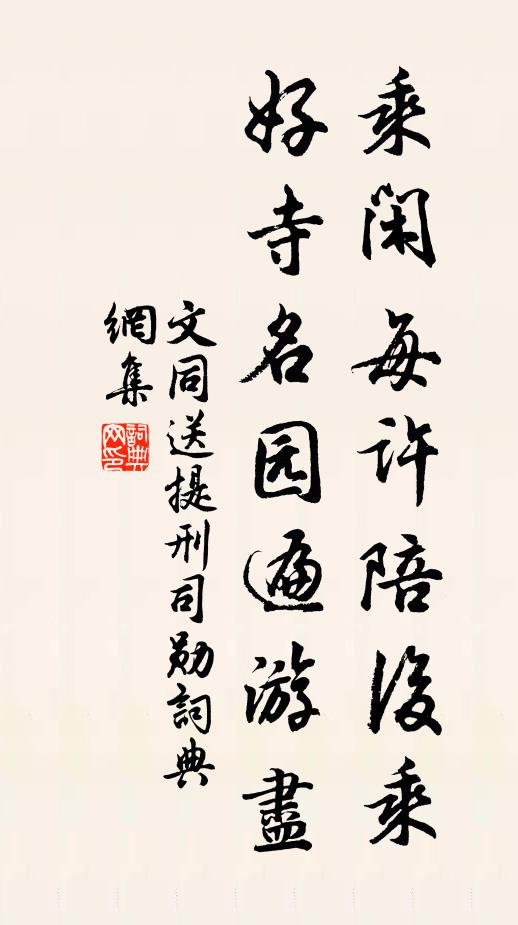 乘閑每許陪後乘
好寺名园遍游盡
文同送提刑司勋詞典
網集
詞典
网印